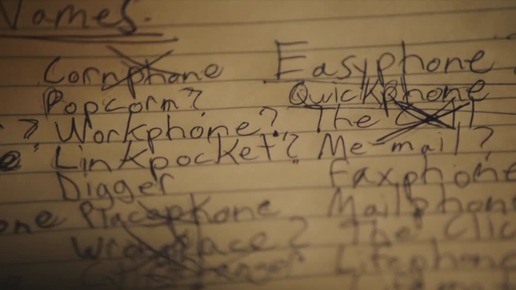 Names.
Cornphone
Popcorm?
? Workphone?
Linkpocket?
Digger
Placephone
Easyphone
Quickphone
The
Me-mail?
Faxphone
Mailphon
The Clic